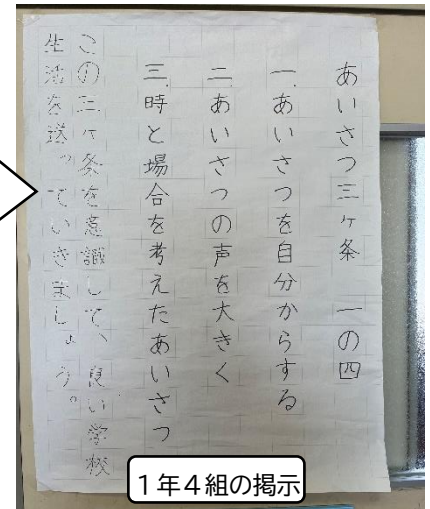 あいさつ三ヶ条　一の四
一、あいさつを自分からする
二、あいさつの声を大きく
三、時と場合を考えたあいさつ
この三ヶ条を意識して、良い学校
生活を送っていきましょう。
1年4組の掲示